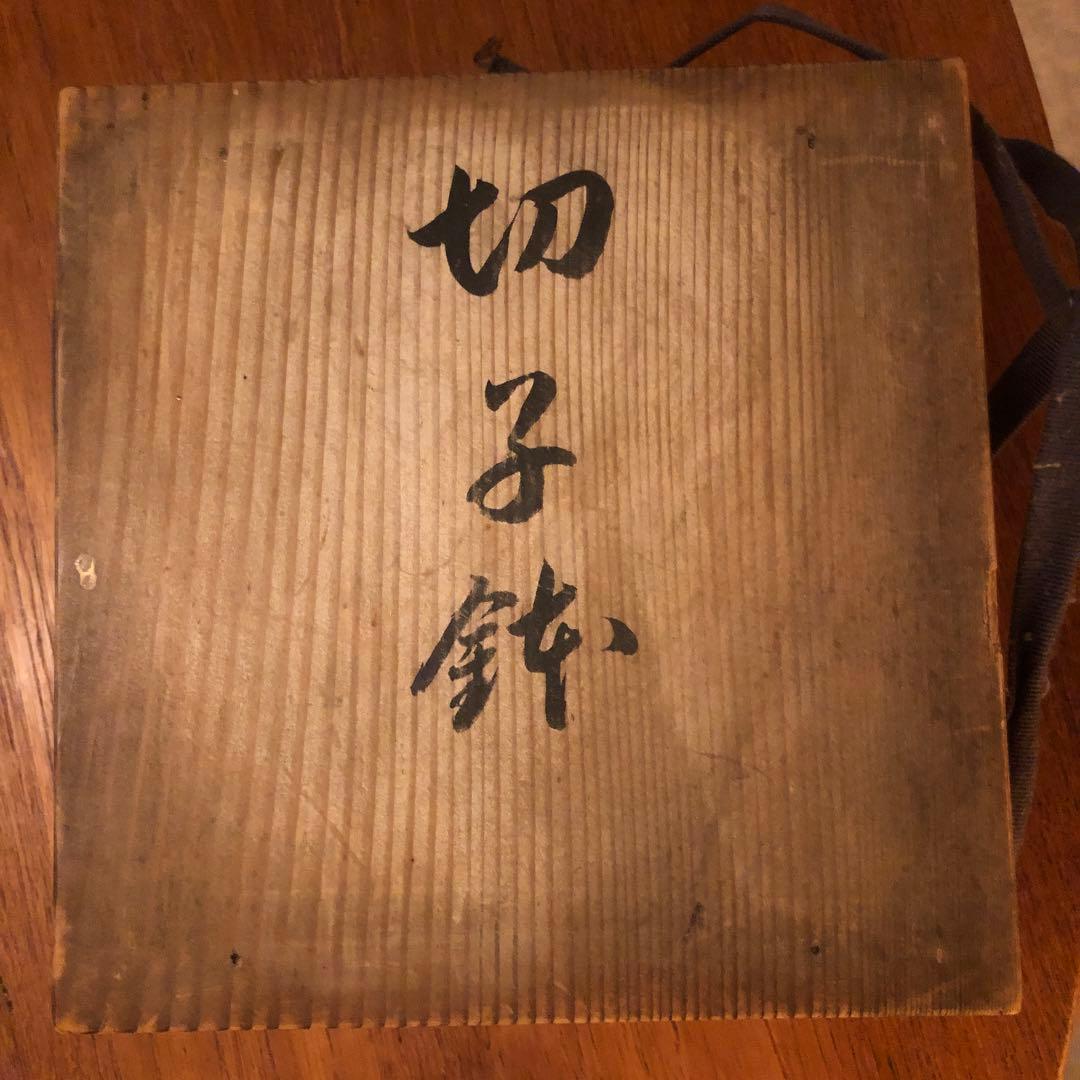 切子鉢